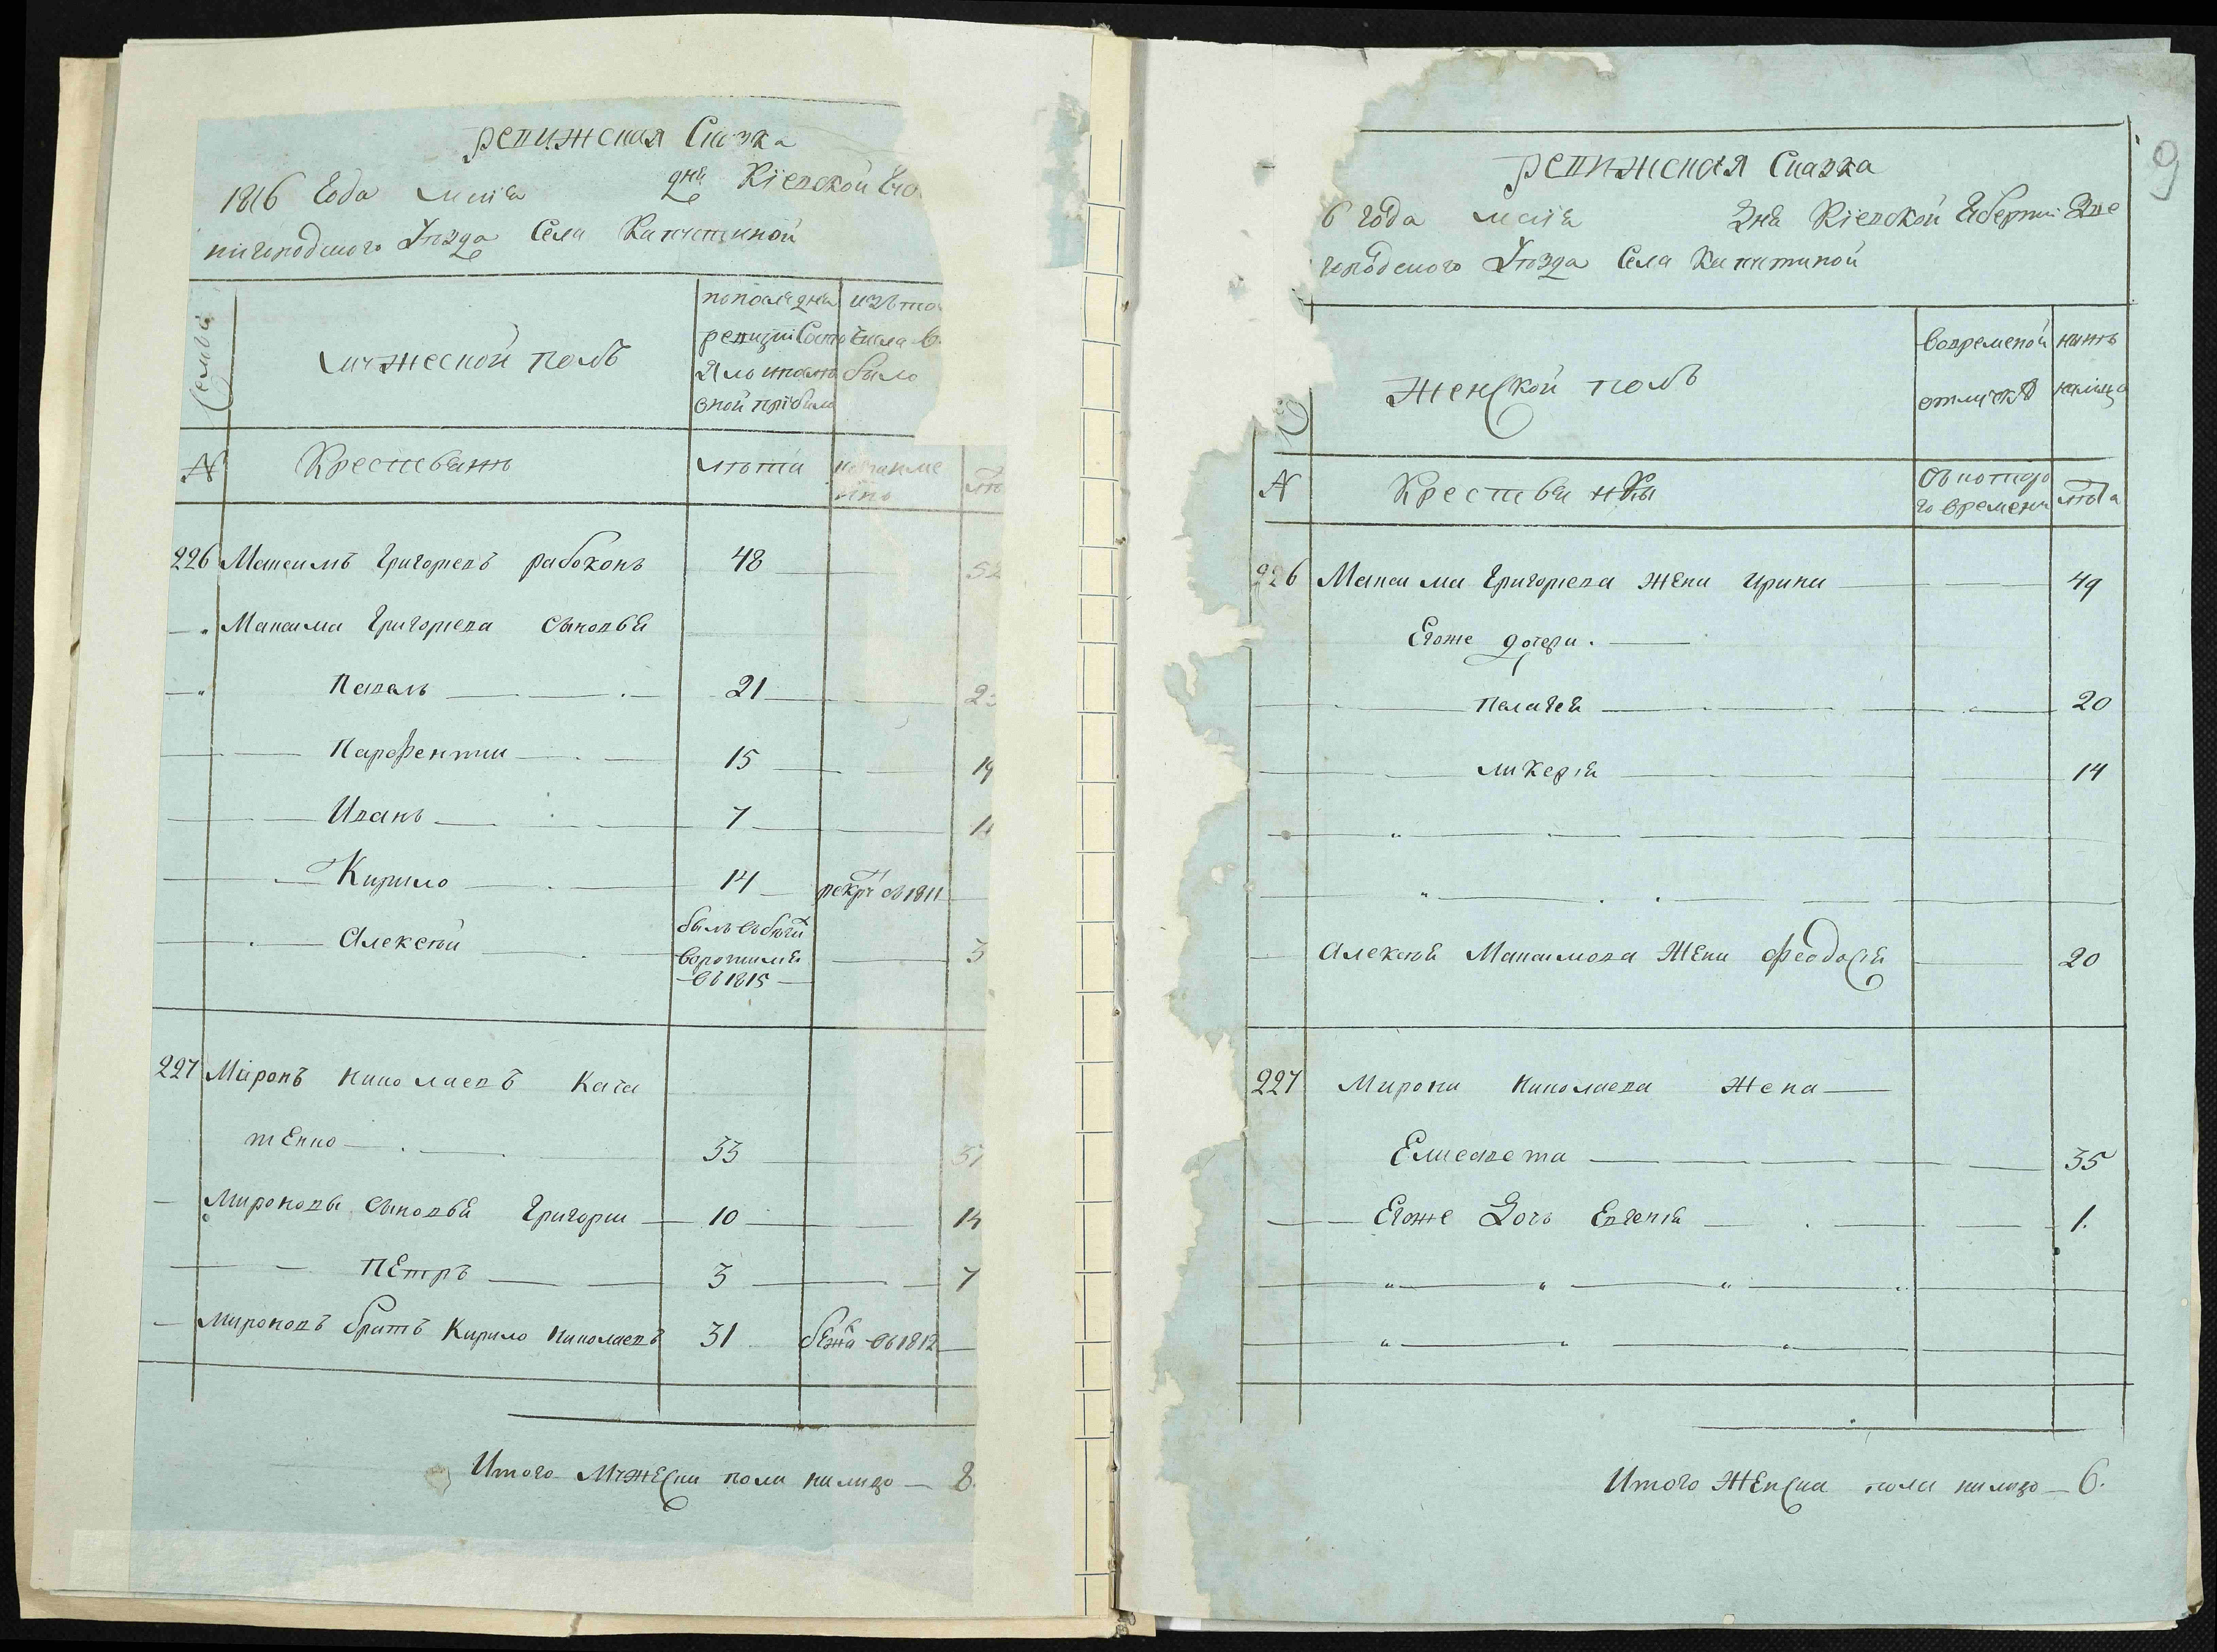 ревижская Сказка
1816 Года мсця дня Кіевской Гу
нигородского Уезда Села Капитиной
Семьи
мужеской полъ
по последней
ревизіи состо
яло и после
оной прибыло
изъ то
числа в
было
№
Крестьянъ
лета
когда име
нно
ле
226 Максимъ Григорьевъ рабоконь 48 52
Максима Григорьева сыновья
Павелъ 21 25
Парфентии 15 19
Иванъ 7 11
Кирило 14 рекру в 1811
Алексѣй былъ в бѣгах
воротился
въ 1815 3
227 Миронъ Николаевъ Кача
тенко 33 37
Мироновы сыновья Григории 10 14
Петръ 3 7
Мироновъ братъ Кирило Николаевъ 31 бежа въ 1812
Итого Мужеска пола налицо 8.
9
ревижская Сказка
6 года мсця дня Кіевской Губерніи Зве
городского Уезда Села Капитиной
Женской полъ
во временной
отлучкѣ
нынѣ
налицо
№
Крестьянки
Съ которо
го времени
лета
226 Максима Григорьева Жена Ирина 49
Егоже дочери.
Пелагея 20
Ликерія 14
Алексѣя Максимова Жена Феодосія 20
227 Мирона Николаева Жена
Елисавета 35
Егоже Дочь Евгенія 1.
Итого Женска пола налицо 6.